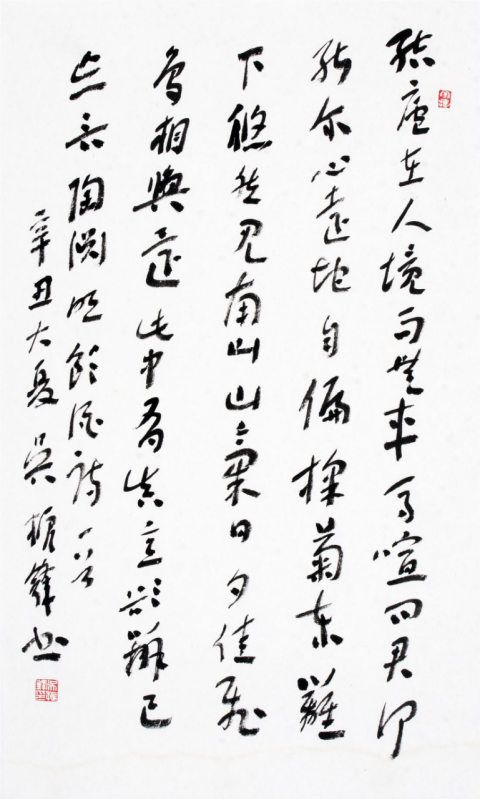 結廬在人境而無車馬喧問君何
能尔心遠地自偏採菊東籬
下悠然見南山山氣日夕佳飛
鳥相與還此中有真意欲辯已
忘言陶淵明飲酒詩一首
辛丑大夏吳振鋒書